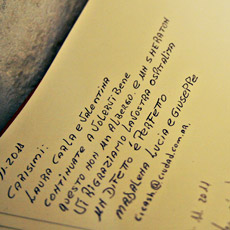 11.2011
CARISIMI:
LAURA CARLA E VALENTINA
CONTINUATE A VOLERVI BENE
QUESTO NON UN ALBERGO. È UN SHERATON
VI RIGRAZIAMO LA VOSTRA OSPITALITÀ
UN DIFETO È PERFETTO
MADDALENA LUCIA E GIUSEPPE
@ciudad.com.ar.
11 2011